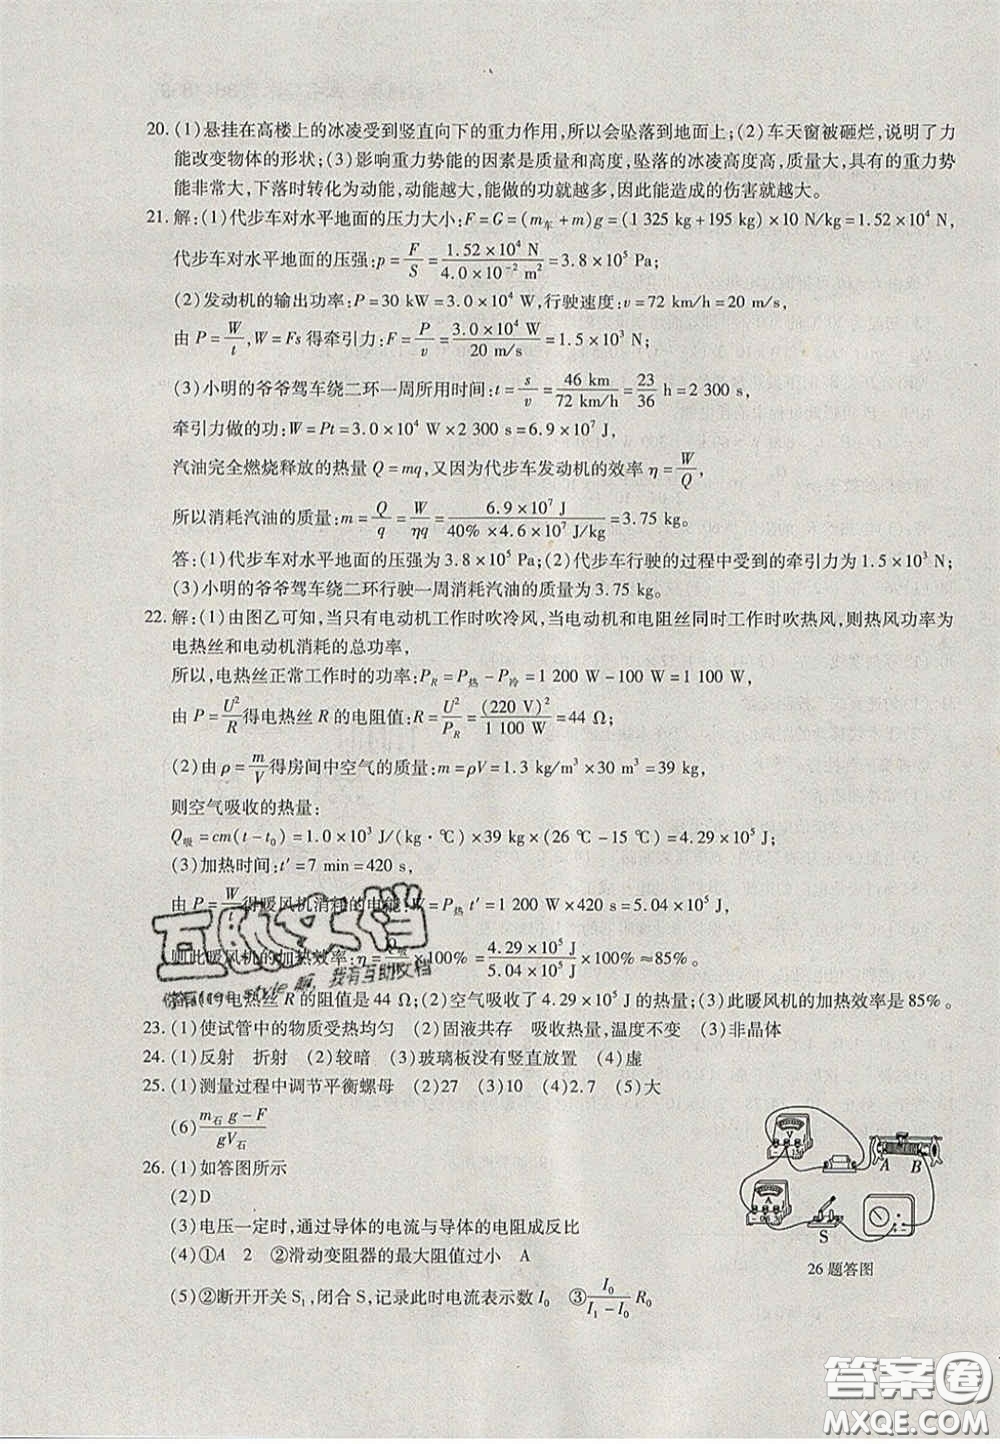 20. (1)悬挂在高楼上的冰凌受到竖直向下的重力作用,所以会坠落到地面上;(2)车天窗被砸烂,说明了力
能改变物体的形状;(3)影响重力势能的因素是质量和高度,坠落的冰凌高度高,质量大,具有的重力势
能非常大,下落时转化为动能,动能越大,能做的功就越多,因此能造成的伤害就越大。
21. 解:(1)代步车对水平地面的压力大小:F=G=(m车+m)g=(1 325 kg+195 kg)×10 N/kg=1.52×10⁴ N,
代步车对水平地面的压强:p=F/S=1.52×10⁴ N/4.0×10⁻² m²=3.8×10⁵ Pa;
(2)发动机的输出功率:P=30 kW=3.0×10⁴ W,行驶速度:v=72 km/h=20 m/s,
由 P=W/t,W=Fs得牵引力:F=P/v=3.0×10⁴ W/20 m/s=1.5×10³ N;
(3)小明的爷爷驾车绕二环一周所用时间:t=s/v=46 km/72 km/h=23/36 h=2 300 s,
牵引力做的功:W=Pt=3.0×10⁴ W×2 300 s=6.9×10⁷ J,
汽油完全燃烧释放的热量 Q=mq,又因为代步车发动机的效率 η=W/Q,
所以消耗汽油的质量:m=Q/q=W/ηq=6.9×10⁷ J/40%×4.6×10⁷ J/kg=3.75 kg。
答:(1)代步车对水平地面的压强为3.8×10⁵ Pa;(2)代步车行驶的过程中受到的牵引力为1.5×10³ N;
(3)小明的爷爷驾车绕二环行驶一周消耗汽油的质量为3.75 kg。
22. 解:(1)由图乙可知,当只有电动机工作时吹冷风,当电动机和电阻丝同时工作时吹热风,则热风功率为
电热丝和电动机消耗的总功率,
所以,电热丝正常工作时的功率:P_R=P热-P冷=1 200 W-100 W=1 100 W,
由 P=U²/R得电热丝 R 的电阻值:R=U²/P_R=(220 V)²/1 100 W=44 Ω;
(2)由 ρ=m/V得房间中空气的质量:m=ρV=1.3 kg/m³×30 m³=39 kg,
则空气吸收的热量:
Q吸=cm(t-t₀)=1.0×10³ J/(kg·℃)×39 kg×(26 ℃-15 ℃)=4.29×10⁵ J;
(3)加热时间:t′=7 min=420 s,
由 P=W/t得暖风机消耗的电能:W=P热 t′=1 200 W×420 s=5.04×10⁵ J,
则此暖风机的加热效率:η=Q吸/W×100%=4.29×10⁵ J/5.04×10⁵ J×100%≈85%。
互助文档
我有互助文档
答:(1)电热丝 R 的阻值是44 Ω;(2)空气吸收了4.29×10⁵ J的热量;(3)此暖风机的加热效率是85%。
23. (1)使试管中的物质受热均匀 (2)固液共存 吸收热量,温度不变 (3)非晶体
24. (1)反射 折射 (2)较暗 (3)玻璃板没有竖直放置 (4)虚
25. (1)测量过程中调节平衡螺母 (2)27 (3)10 (4)2.7 (5)大
(6)m石 g-F/gV石
26. (1)如答图所示
(2)D
(3)电压一定时,通过导体的电流与导体的电阻成反比
(4)①A 2 ②滑动变阻器的最大阻值过小 A
(5)②断开开关 S₁,闭合 S,记录此时电流表示数 I₀ ③I₀/I₁-I₀ R₀
V
A B
A
S
26 题答图
答案圈
MXQE.COM